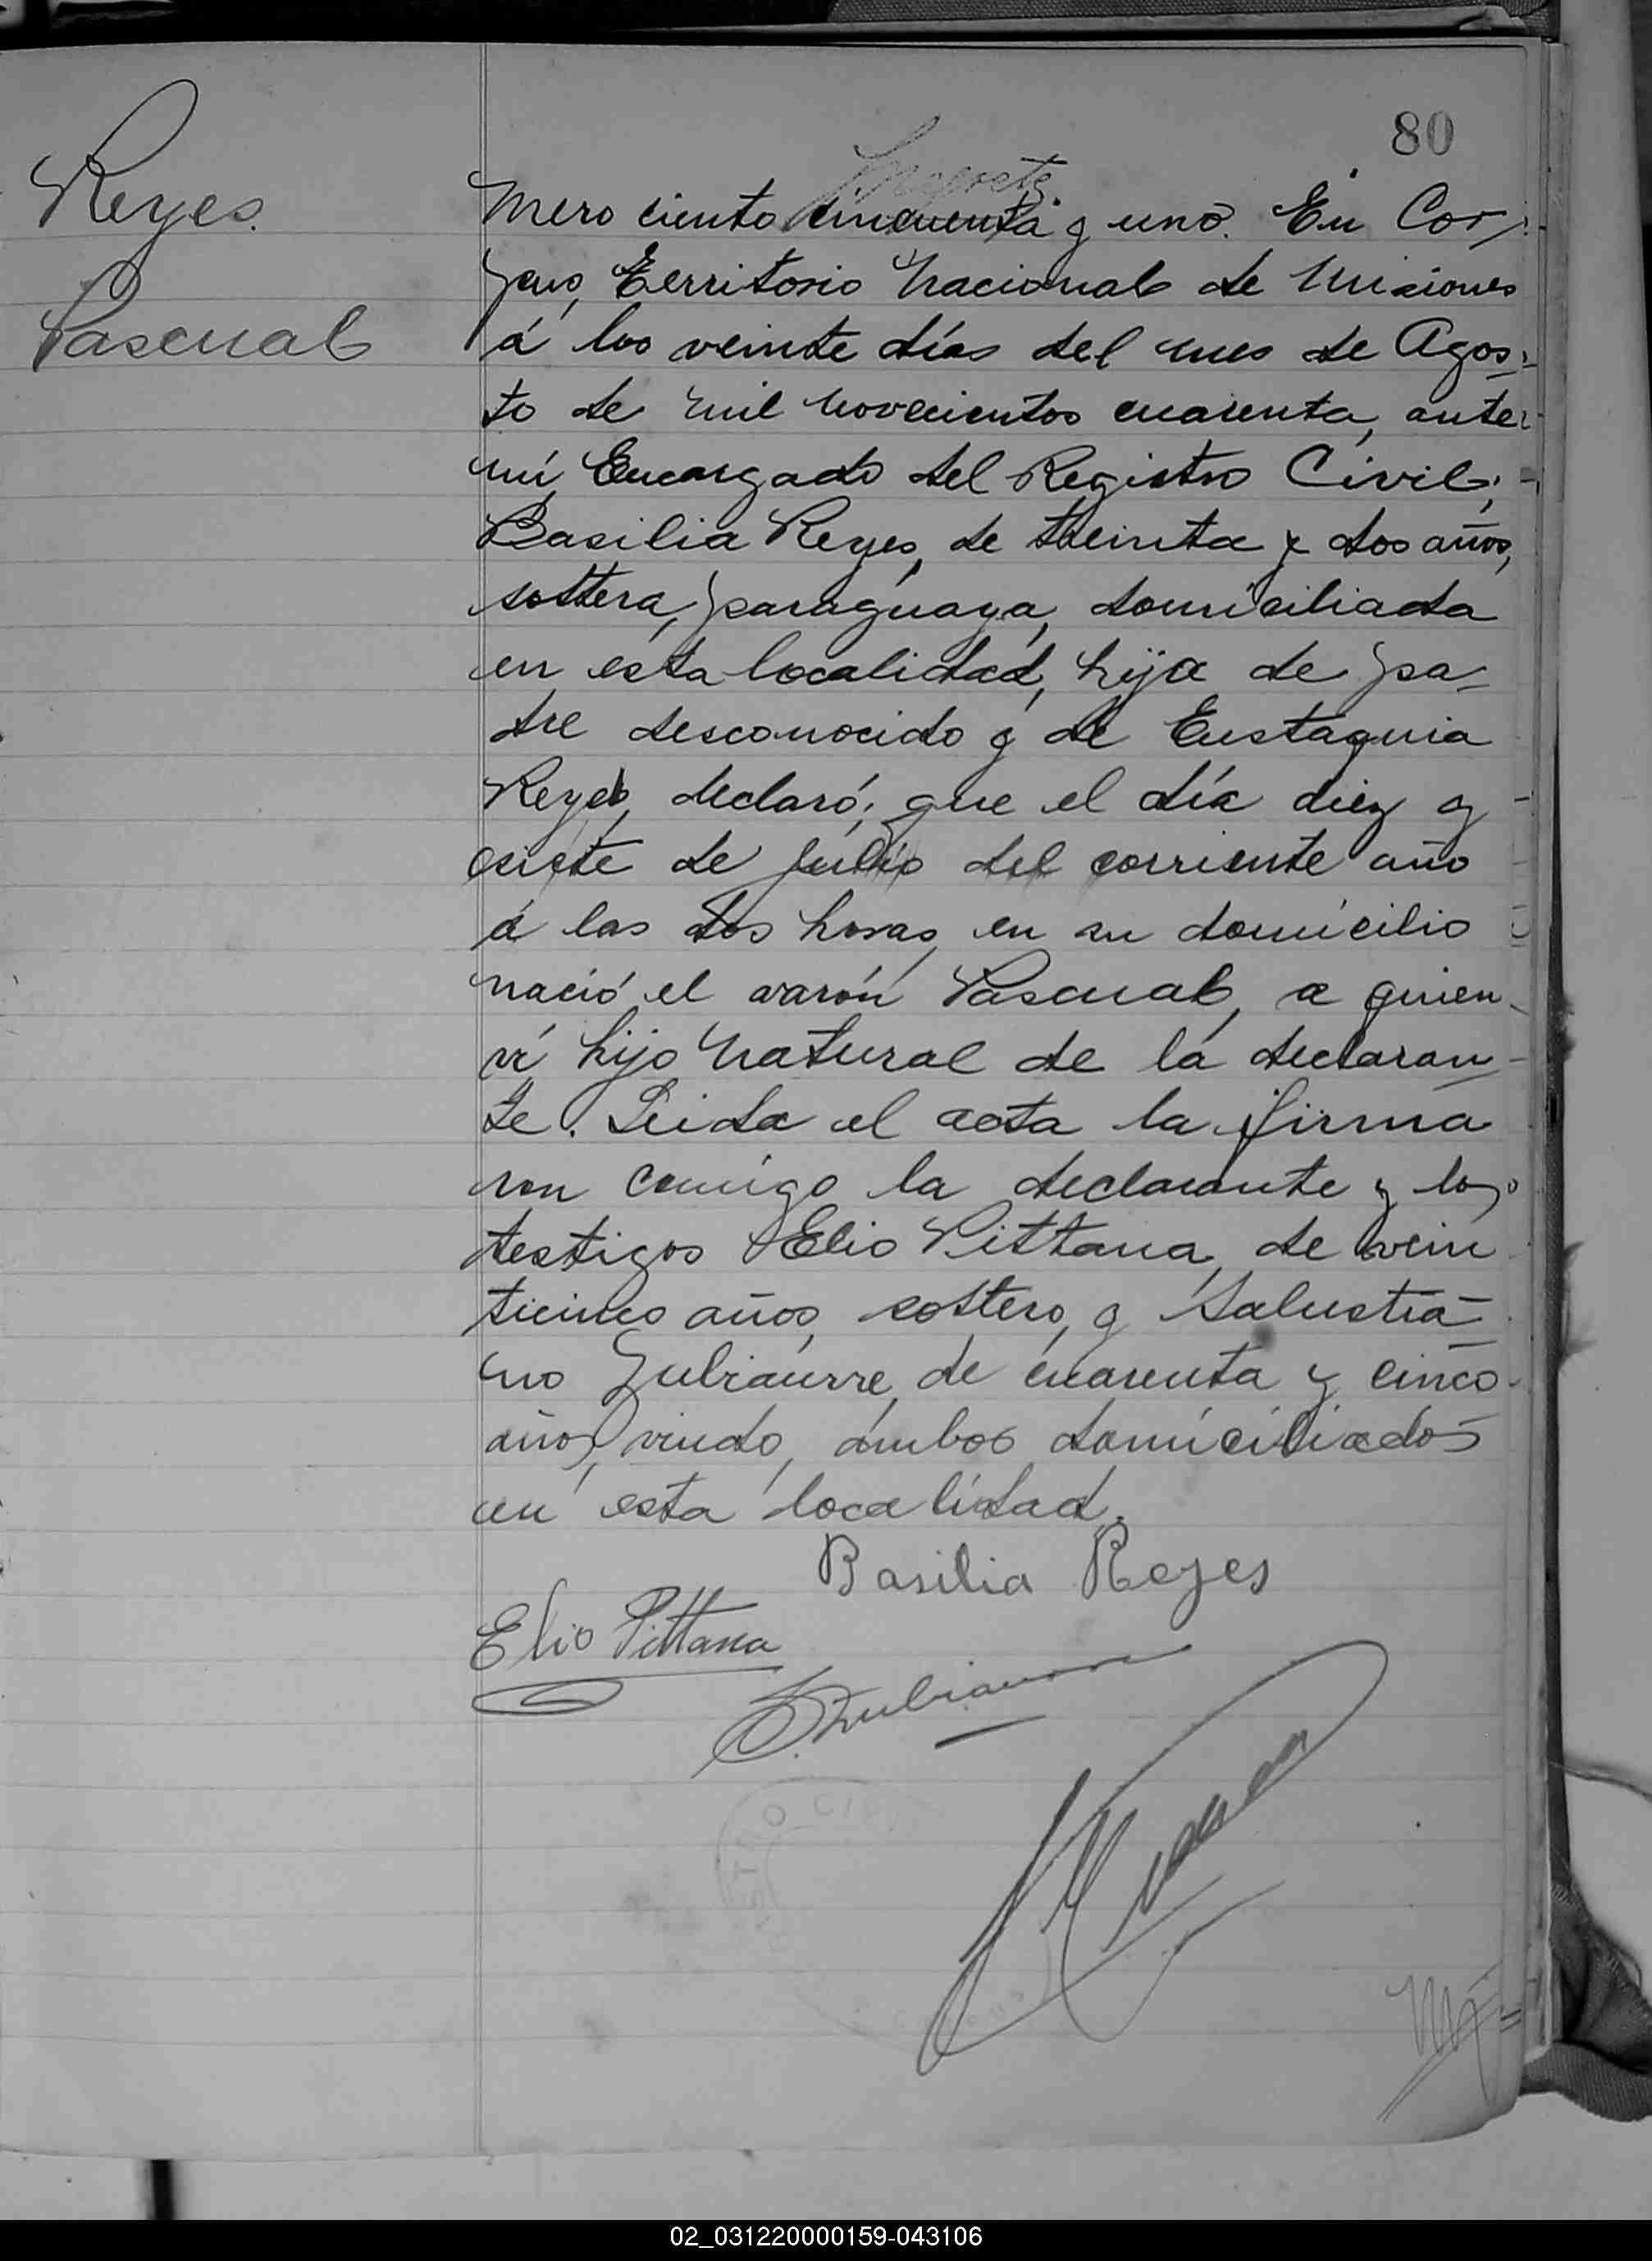 80
Reyes.
Pascual
mero ciento cincuenta y uno. En Cor-
pus, Territorio Nacional de Misiones
á los veinte días del mes de Agos-
to de mil novecientos cuarenta, ante
mí, Encargado del Registro Civil,
Basilia Reyes, de treinta y dos años,
soltera, paraguaya, domiciliada
en esta localidad, hija de pa-
dre desconocido y de Eustaquia
Reyes, declaró: que el día diez y
siete de Julio del corriente año
á las dos horas, en su domicilio
nació el varón Pascual, a quien
ví hijo natural de la declaran-
te. Leida el acta la firma
ron comigo la declarante y los
testigos Elio Pittana, de vein
ticinco años, soltero, y Salustia-
no Zubiaurre, de cuarenta y cinco
años, viudo, ambos domiciliados
en esta localidad.
Basilia Reyes
Elio Pittana
S. Zubiaurre
STRO CI
02_031220000159-043106